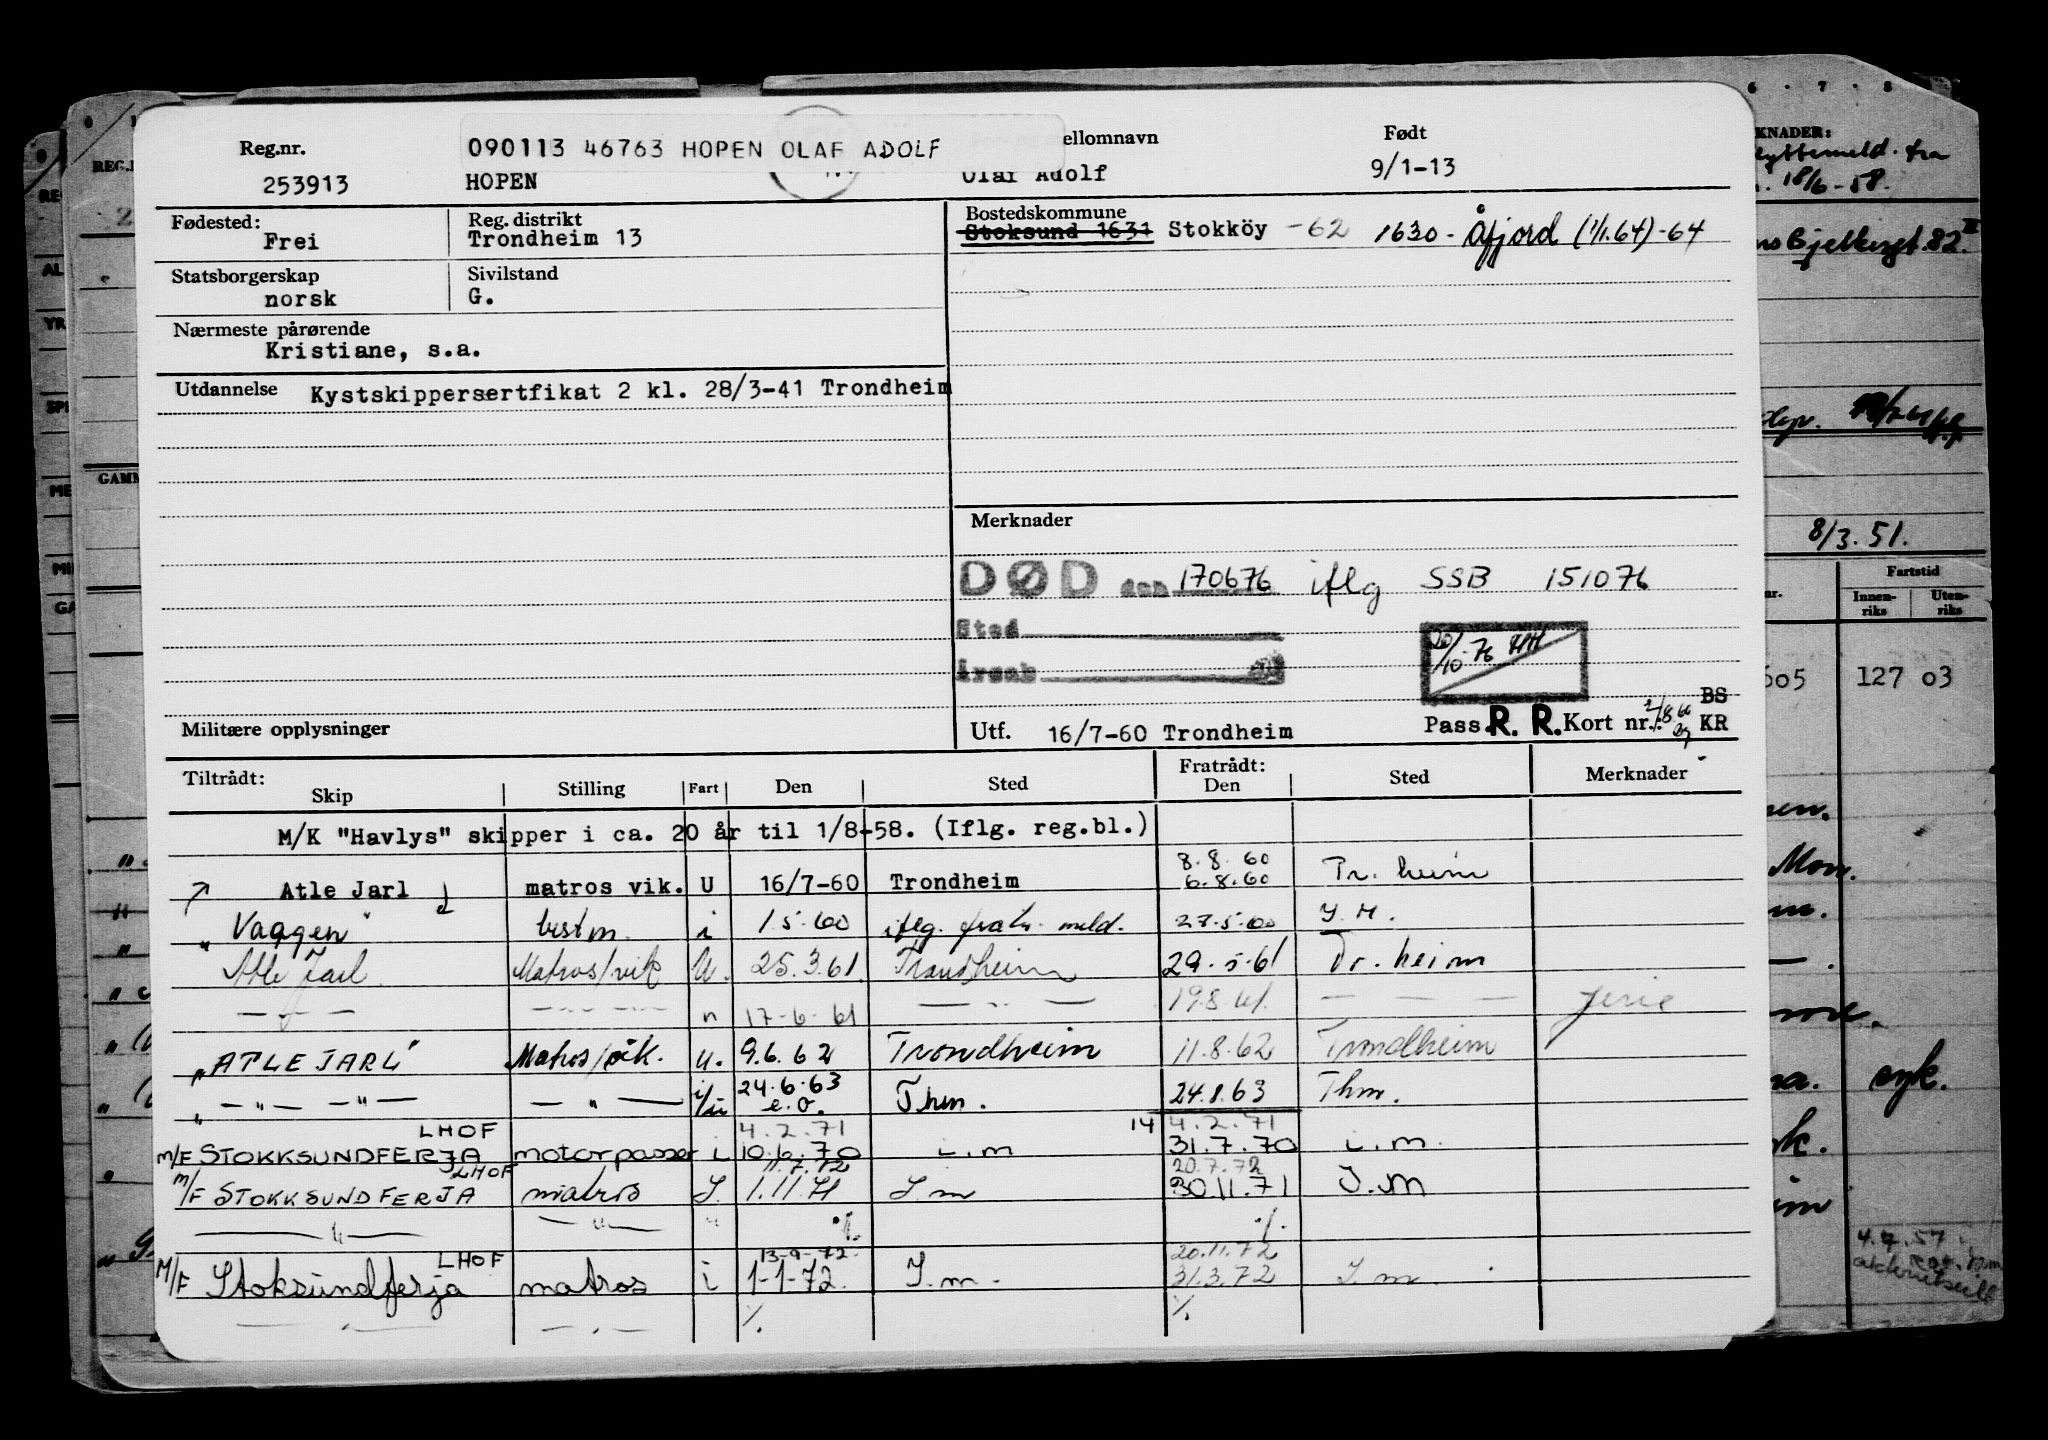 Reg.nr.
253913
090113 46763 HOPEN OLAF ADOLF
HOPEN
ellomnavn
Olaf Adolf
Født
9/1-13
Fødested:
Frei
Reg. distrikt
Trondheim 13
Bostedskommune
Stoksund 1631 Stokköy -62 1630 - Åfjord (1/1.64) -64
Statsborgerskap
norsk
Sivilstand
G.
Nærmeste pårørende
Kristiane, s.a.
Utdannelse Kystskippersertfikat 2 kl. 28/3-41 Trondheim
Merknader
DØD den 170676 iflg SSB 151076
Sted
Årsak
20/10-76 HH
Militære opplysninger
Utf. 16/7-60 Trondheim
Pass R. R. Kort nr.: BS KR
Tiltrådt:
Skip Stilling Fart Den Sted
Fratrådt:
Den Sted Merknader
M/K "Havlys" skipper i ca. 20 år til 1/8-58. (Iflg. reg.bl.)
8.8.60
Atle Jarl matros vik. U 16/7-60 Trondheim 6.8.60 Tr.heim
"Vaagen" bestm. i 1.5.60 iflg. fratr. meld. 27.5.60 I.M.
Atle Jarl Matros/vik U. 25.3.61 Trondheim 29.5.61 Tr.heim
— " — — " — " 17-6-61 — " — 19.8.61. — — — ferie
"ATLE JARL" Matros/vik. u. 9.6.62 Trondheim 11.8.62 Trondheim
" — " — — " — — " — i/u 24.6.63 e.o. Thm. 24.8.63 Thm.
LHOF 4.2.71 14 4.2.71
M/F STOKKSUNDFERJA motorpasser i 10.6.70 i.m 31.7.70 i.m.
LHOF 11.7.72 20.7.72
M/F STOKKSUNDFERJA matros I. 1.11.71 I m 30.11.71 I.M
— " — — " — " %. %.
LHOF 13-9-72. 20.11.72
M/F Stoksundferja matros i 1-1-72. I.m. 31.3.72 I.m.
— " — — " — %. %.
6 · 7 · 8
KNADER:
fra
18/6-58.
Bjelkesgt. 82.
8/3.51.
Fartstid
Innen-
riks
Uten-
riks
605 127 03
syk.
4.7.57
REG.
GAMM